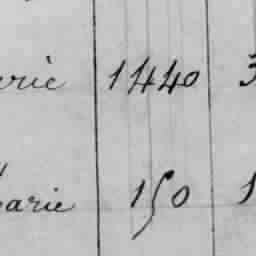 erie 1440 3
arie 150 1